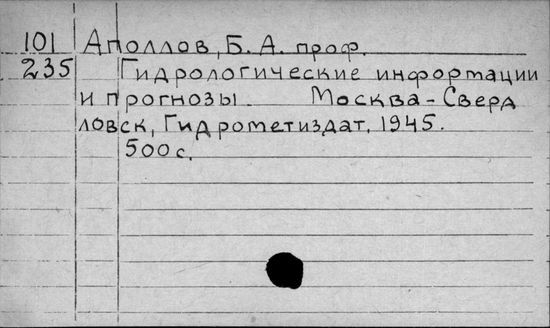 101 Аполлов, Б. А. проф.
235 Гидрологические информации
и прогнозы. Москва-Сверд
ловск, Гидрометиздат, 1945.
500 с.